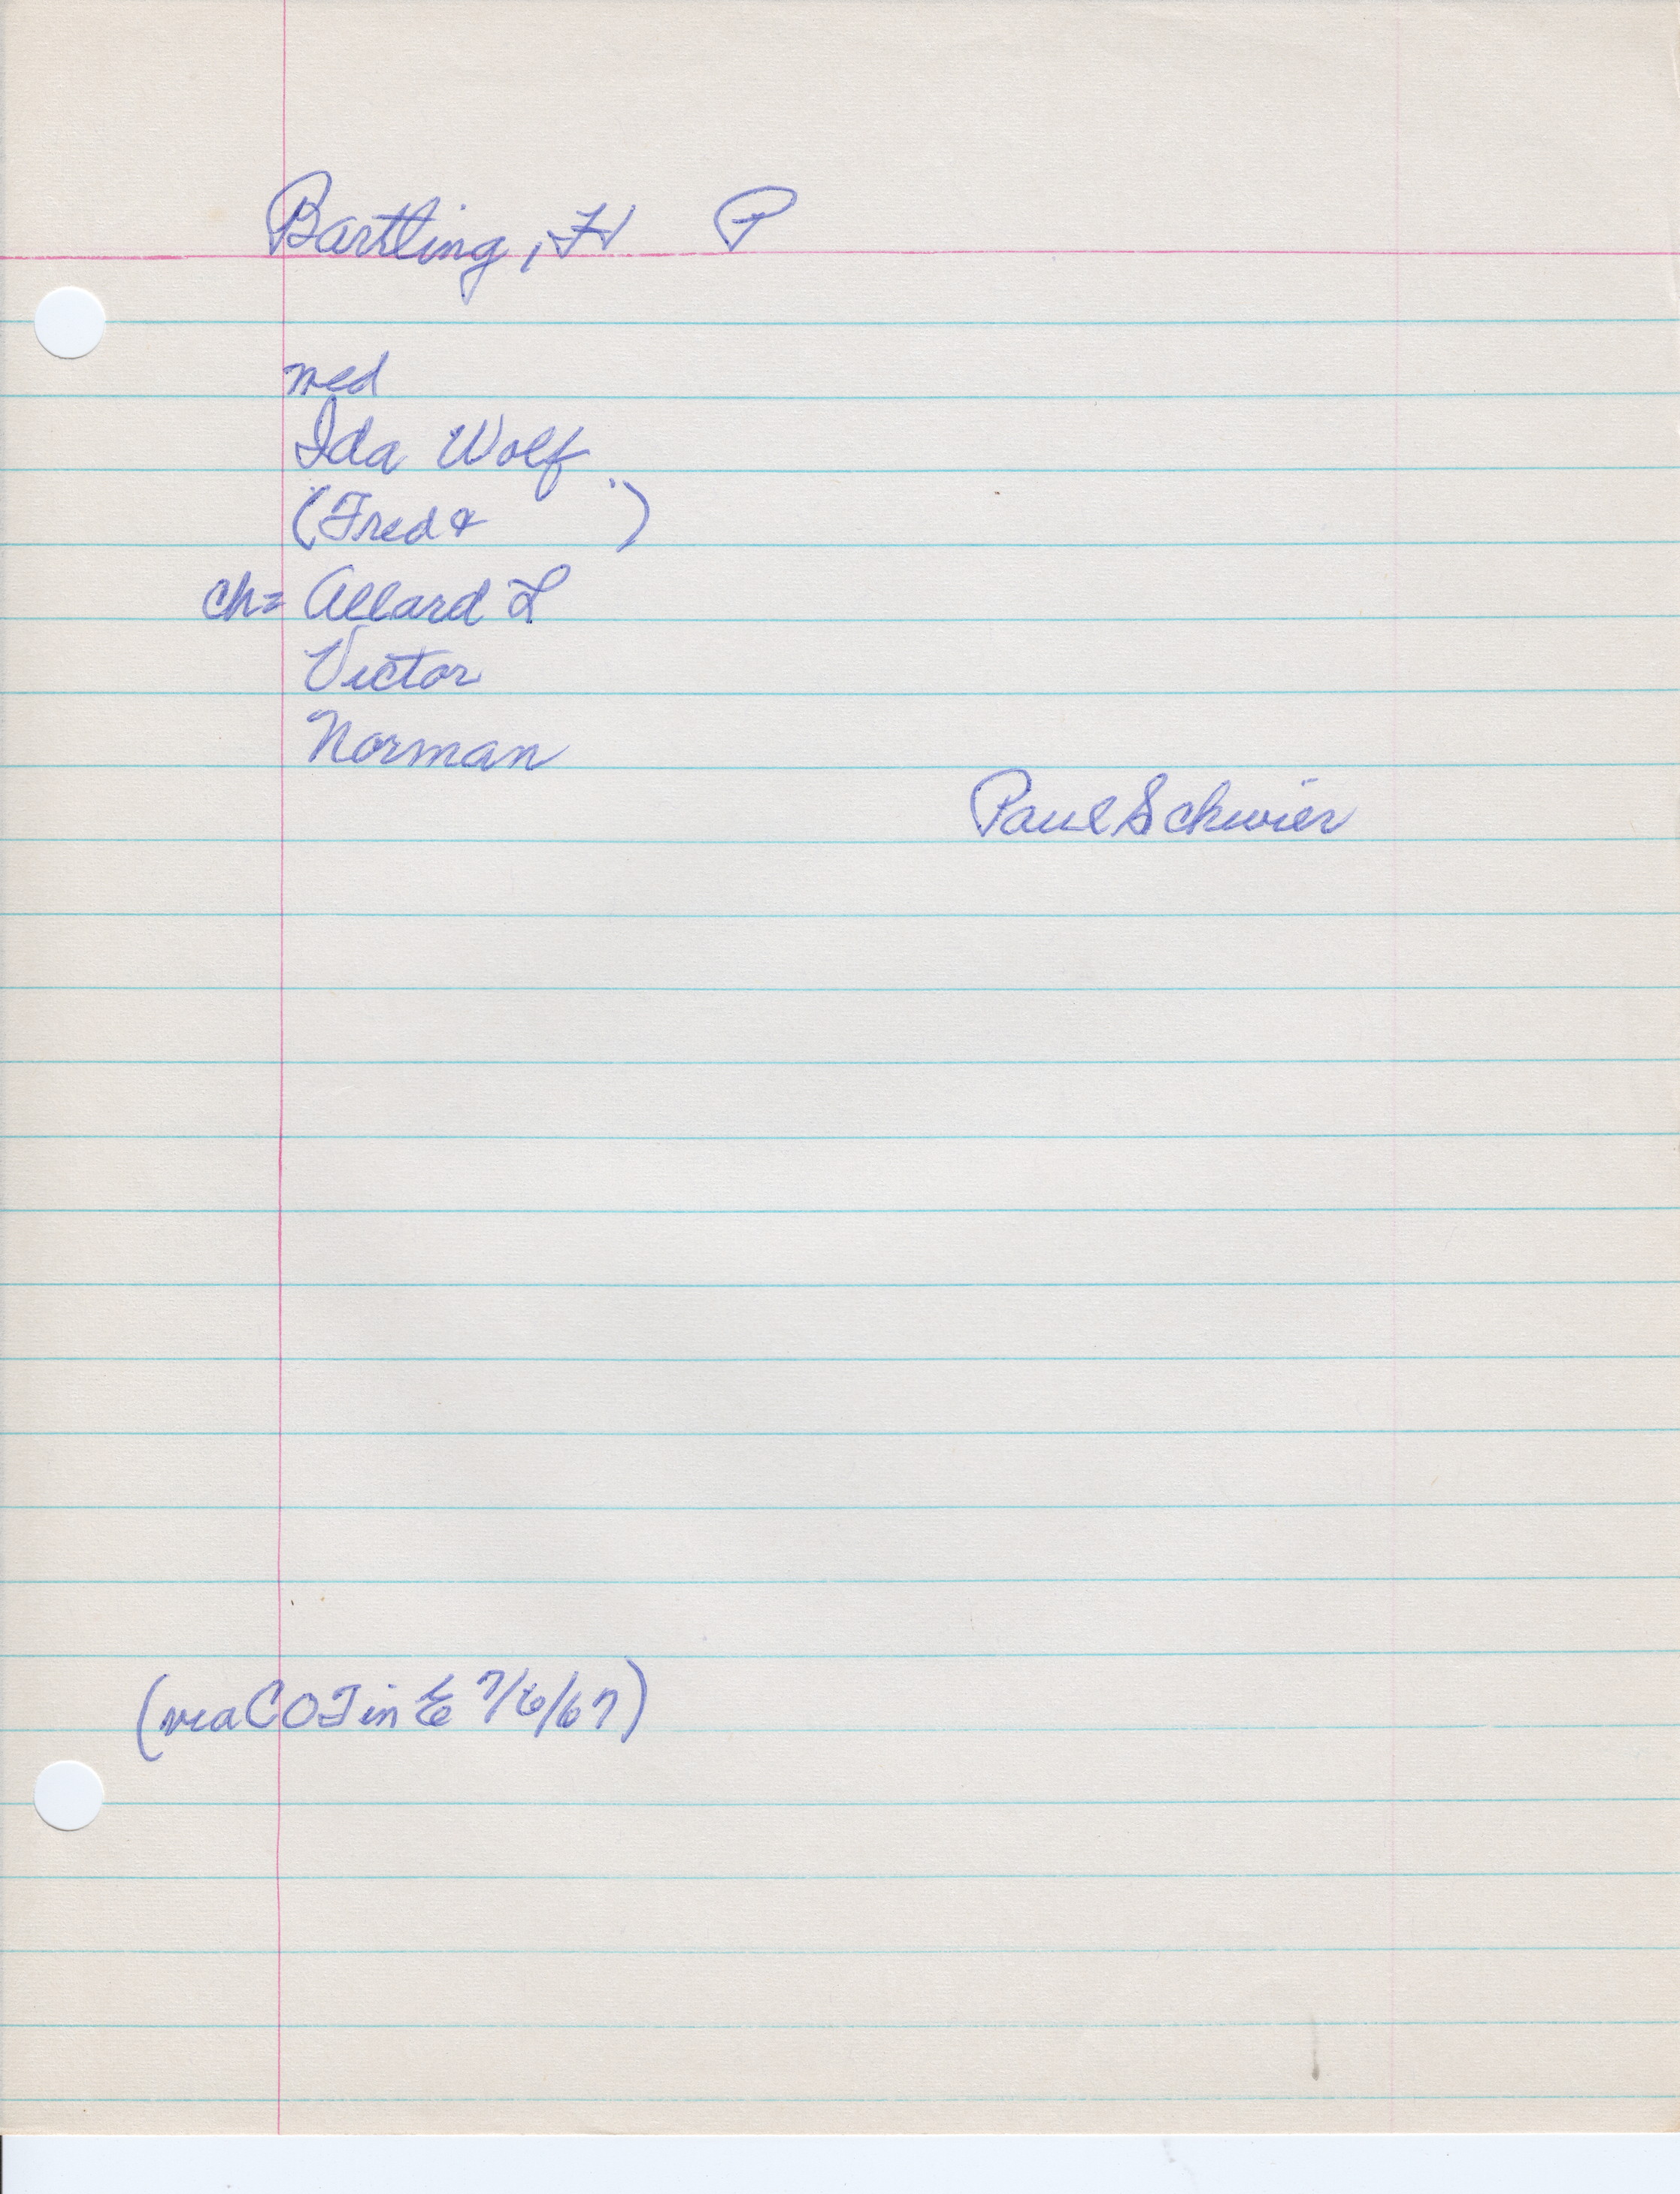 Bartling, H P
med
Ida Wolf
(Fred & )
ch= Allard L
Victor
Norman
Paul Schwier
(via COT in E 7/6/67)